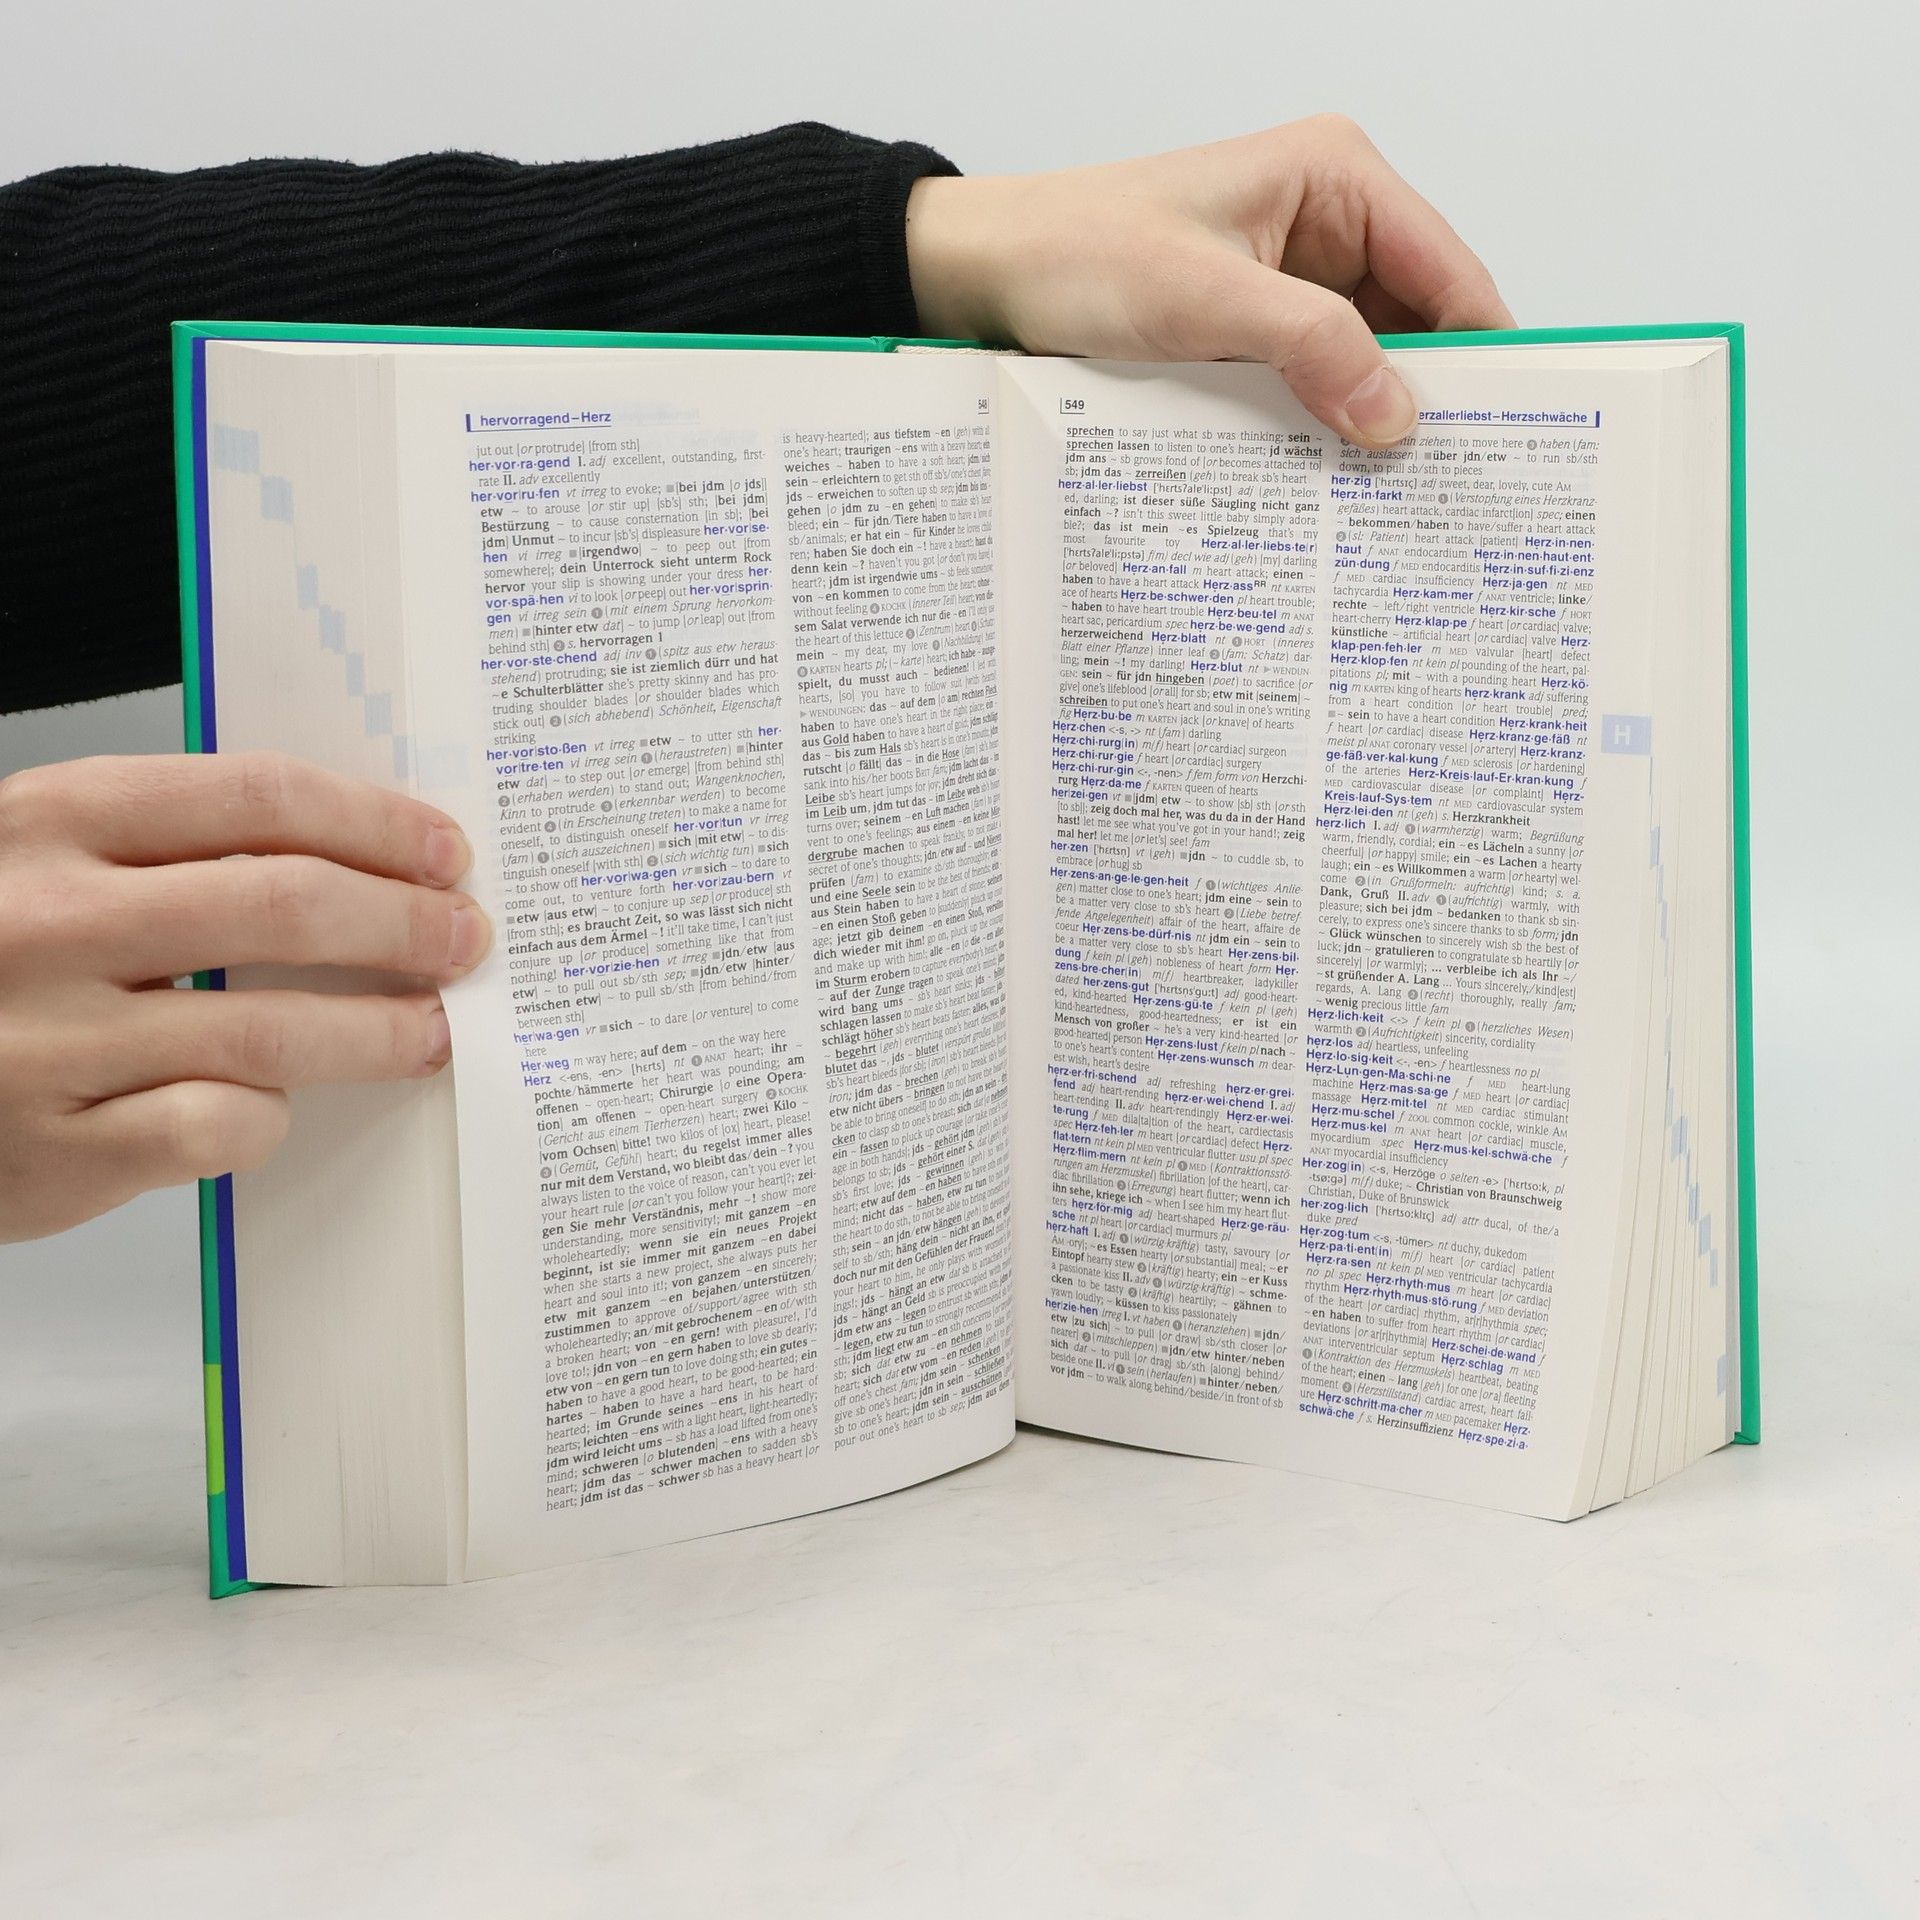 hervorragend–Herz
548
jut out [or protrude] [from sth]
her·vor·ra·gend I. adj excellent, outstanding, first-
rate II. adv excellently
her·vor|ru·fen vt irreg to evoke; ■[bei jdm [o jds]]
etw ~ to arouse [or stir up] [sb's] sth; [bei jdm]
Bestürzung ~ to cause consternation [in sb]; [bei
jdm] Unmut ~ to incur [sb's] displeasure her·vor|se·
hen vi irreg ■[irgendwo] ~ to peep out [from
somewhere]; dein Unterrock sieht unterm Rock
hervor your slip is showing under your dress her·
vor·spä·hen vi to look [or peep] out her·vor|sprin·
gen vi irreg sein ❶ (mit einem Sprung hervorkom-
men) ■[hinter etw dat] ~ to jump [or leap] out [from
behind sth] ❷ s. hervorragen 1
her·vor·ste·chend adj inv ❶ (spitz aus etw heraus-
stehend) protruding; sie ist ziemlich dürr und hat
~e Schulterblätter she's pretty skinny and has pro-
truding shoulder blades [or shoulder blades which
stick out] ❷ (sich abhebend) Schönheit, Eigenschaft
striking
her·vor|sto·ßen vt irreg ■etw ~ to utter sth her·
vor|tre·ten vi irreg sein ❶ (heraustreten) ■[hinter
etw dat] ~ to step out [or emerge] [from behind sth]
❷ (erhaben werden) to stand out; Wangenknochen,
Kinn to protrude ❸ (erkennbar werden) to become
evident ❹ (in Erscheinung treten) to make a name for
oneself, to distinguish oneself her·vor|tun vr irreg
(fam) ❶ (sich auszeichnen) ■sich [mit etw] ~ to dis-
tinguish oneself [with sth] ❷ (sich wichtig tun) ■sich
~ to show off her·vor|wa·gen vr ■sich ~ to dare to
come out, to venture forth her·vor|zau·bern vt
■etw [aus etw] ~ to conjure up sep [or produce] sth
[from sth]; es braucht Zeit, so was lässt sich nicht
einfach aus dem Ärmel ~! it'll take time, I can't just
conjure up [or produce] something like that from
nothing! her·vor|zie·hen vt irreg ■jdn/etw [aus
etw] ~ to pull out sb/sth sep; ■jdn/etw [hinter/
zwischen etw] ~ to pull sb/sth [from behind/from
between sth]
her|wa·gen vr ■sich ~ to dare [or venture] to come
here
Her·weg m way here; auf dem ~ on the way here
Herz <-ens, -en> [hɛrts] nt ❶ ANAT heart; ihr ~
pochte/hämmerte her heart was pounding; am
offenen ~ open-heart; Chirurgie [o eine Opera-
tion] am offenen ~ open-heart surgery ❷ KOCHK
(Gericht aus einem Tierherzen) heart; zwei Kilo ~
[vom Ochsen] bitte! two kilos of [ox] heart, please!
❸ (Gemüt, Gefühl) heart; du regelst immer alles
nur mit dem Verstand, wo bleibt das/dein ~? you
always listen to the voice of reason, can't you ever let
your heart rule [or can't you follow your heart]?; zei-
gen Sie mehr Verständnis, mehr ~! show more
understanding, more sensitivity!; mit ganzem ~en
wholeheartedly; wenn sie ein neues Projekt
beginnt, ist sie immer mit ganzem ~en dabei
when she starts a new project, she always puts her
heart and soul into it!; von ganzem ~en sincerely;
etw mit ganzem ~en bejahen/unterstützen/
zustimmen to approve of/support/agree with sth
wholeheartedly; an/mit gebrochenem ~en of/with
a broken heart; von ~en gern! with pleasure!, I'd
love to!; jdn von ~en gern haben to love sb dearly;
etw von ~en gern tun to love doing sth; ein gutes ~
haben to have a good heart, to be good-hearted; ein
hartes ~ haben to have a hard heart, to be hard-
hearted; im Grunde seines ~ens in his heart of
hearts; leichten ~ens with a light heart, light-heartedly;
jdm wird leicht ums ~ sb has a load lifted from one's
mind; schweren [o blutenden] ~ens with a heavy
heart; jdm das ~ schwer machen to sadden sb's
heart; jdm ist das ~ schwer sb has a heavy heart [or
is heavy-hearted]; aus tiefstem ~en (geh) with all
one's heart; traurigen ~ens with a heavy heart; ein
weiches ~ haben to have a soft heart; jdm sich
sein ~ erleichtern to get sth off sb's/one's chest fam
jds ~ erweichen to soften up sb sep; jdm bis ins ~
gehen [o jdm zu ~en gehen] to make sb's heart
bleed; ein ~ für jdn/Tiere haben to have a love of
sb/animals; er hat ein ~ für Kinder he loves child-
ren; haben Sie doch ein ~! have a heart!; hast du
denn kein ~? haven't you got [or don't you have] a
heart?; jdm ist irgendwie ums ~ sb feels somehow;
von ~en kommen to come from the heart; ohne ~
without feeling ❹ KOCHK (innerer Teil) heart; von die-
sem Salat verwende ich nur die ~en I'll only use
the heart of this lettuce ❺ (Zentrum) heart ❻ (Schatz)
mein ~ my dear, my love ❼ (Nachbildung) heart
❽ KARTEN hearts pl; (~karte) heart; ich habe ~ ausge-
spielt, du musst auch ~ bedienen! I led with
hearts, [so] you have to follow suit [with hearts]
▶ WENDUNGEN: das ~ auf dem [o am] rechten Fleck
haben to have one's heart in the right place; ein ~
aus Gold haben to have a heart of gold; jdm schlägt
das ~ bis zum Hals sb's heart is in one's mouth; jdm
rutscht [o fällt] das ~ in die Hose (fam) sb's heart
sank into his/her boots BRIT fam; jdm lacht das ~ im
Leibe sb's heart jumps for joy; jdm dreht sich das ~
im Leib um, jdm tut das ~ im Leibe weh sb's heart
turns over; seinem ~en Luft machen (fam) to give
vent to one's feelings; aus einem ~en keine Mör-
dergrube machen to speak frankly, to not make a
secret of one's thoughts; jdn/etw auf ~ und Nieren
prüfen (fam) to examine sb/sth thoroughly; ein ~
und eine Seele sein to be the best of friends; ein ~
aus Stein haben to have a heart of stone; seinem
~en einen Stoß geben to [suddenly] pluck up cour-
age; jetzt gib deinem ~en einen Stoß, versöhn
dich wieder mit ihm! go on, pluck up the courage
and make up with him!; alle ~en [o die ~en aller]
im Sturm erobern to capture everybody's heart; das
~ auf der Zunge tragen to speak one's mind; jdm
wird bang ums ~ sb's heart sinks; jds ~ höher
schlagen lassen to make sb's heart beat faster; jds ~
schlägt höher sb's heart beats faster; alles, was das
~ begehrt (geh) everything one's heart desires; jdm
blutet das ~, jds ~ blutet (verspürt großes Mitleid)
sb's heart bleeds [for sb]; (iron) sb's heart bleeds
iron; jdm das ~ brechen (geh) to break sb's heart
etw nicht übers ~ bringen to not have the heart to
be able to bring oneself] to do sth; jdn an sein ~ drü-
cken to clasp sb to one's breast; sich dat [o jdm]
ein ~ fassen to pluck up courage [or take one's cour-
age in both hands]; jds ~ gehört jdm (geh) sb's heart
belongs to sb; jds ~ gehört einer S. dat (geh)
sb's first love; jds ~ gewinnen (geh) to win sb's
heart; etw auf dem ~en haben to have sth on one's
mind; nicht das ~ haben, etw zu tun to not have
the heart to do sth, to not be able to bring oneself to do
sth; sein ~ an jdn/etw hängen (geh) to devote one-
self to sb/sth; häng dein ~ nicht an ihn, er spielt
doch nur mit den Gefühlen der Frauen! don't give
your heart to him, he only plays with women's feel-
ings!; jds ~ hängt an etw dat sb is attached to sth;
jds ~ hängt an Geld sb is preoccupied with money;
jdm etw ans ~ legen to entrust sb with sth; jdm ans
~ legen, etw zu tun to strongly recommend sb to do
sth; jdm liegt etw am ~en sth concerns [or troubles]
sb; sich dat etw zu ~en nehmen to take sth to
heart; sich dat etw vom ~en reden (geh) to get sth
off one's chest fam; jdm sein ~ schenken (liter) to
give sb one's heart; jdn in sein ~ schließen to take
sb to one's heart; jdm sein ~ ausschütten (geh) to
pour out one's heart to sb sep; jdm aus dem ~en
549
erzallerliebst–Herzschwäche
sprechen to say just what sb was thinking; sein ~
sprechen lassen to listen to one's heart; jd wächst
jdm ans ~ sb grows fond of [or becomes attached to]
sb; jdm das ~ zerreißen (geh) to break sb's heart
herz·al·ler·liebst ['hɛrtsʔalɐ'li:pst] adj (geh) belov-
ed, darling; ist dieser süße Säugling nicht ganz
einfach ~? isn't this sweet little baby simply adora-
ble?; das ist mein ~es Spielzeug that's my
most favourite toy Herz·al·ler·liebs·te(r)
['hɛrtsʔalɐ'li:pstə] f(m) decl wie adj (geh) [my] darling
[or beloved] Herz·an·fall m heart attack; einen ~
haben to have a heart attack Herz·assᴿᴿ nt KARTEN
ace of hearts Herz·be·schwer·den pl heart trouble;
~ haben to have heart trouble Herz·beu·tel m ANAT
heart sac, pericardium spec herz·be·we·gend adj s.
herzerweichend Herz·blatt nt ❶ HORT (inneres
Blatt einer Pflanze) inner leaf ❷ (fam: Schatz) dar-
ling; mein ~! my darling! Herz·blut nt ▶WENDUN-
GEN: sein ~ für jdn hingeben (poet) to sacrifice [or
give] one's lifeblood [or all] for sb; etw mit [seinem] ~
schreiben to put one's heart and soul in one's writing
fig Herz·bu·be m KARTEN jack [or knave] of hearts
Herz·chen <-s, -> nt (fam) darling
Herz·chi·rurg(in) m(f) heart [or cardiac] surgeon
Herz·chi·rur·gie f heart [or cardiac] surgery
Herz·chi·rur·gin <-, -nen> f fem form von Herzchi-
rurg Herz·da·me f KARTEN queen of hearts
her|zei·gen vt ■[jdm] etw ~ to show [sb] sth [or sth
[to sb]]; zeig doch mal her, was du da in der Hand
hast! let me see what you've got in your hand!; zeig
mal her! let me [or let's] see! fam
her·zen ['hɛrtsn̩] vt (geh) ■jdn ~ to cuddle sb, to
embrace [or hug] sb
Herz·ens·an·ge·le·gen·heit f ❶ (wichtiges Anlie-
gen) matter close to one's heart; jdm eine ~ sein to
be a matter very close to sb's heart ❷ (Liebe betref-
fende Angelegenheit) affair of the heart, affaire de
coeur Her·zens·be·dürf·nis nt jdm ein ~ sein to
be a matter very close to sb's heart Her·zens·bil-
dung f kein pl (geh) nobleness of heart form Her-
zens·bre·cher(in) m(f) heartbreaker, ladykiller
dated her·zens·gut ['hɛrtsn̩s'gu:t] adj good-heart-
ed, kind-hearted Her·zens·gü·te f kein pl (geh)
kind-heartedness, good-heartedness; er ist ein
Mensch von großer ~ he's a very kind-hearted [or
good-hearted] person Her·zens·lust f kein pl nach ~
to one's heart's content Her·zens·wunsch m dear-
est wish, heart's desire
herz·er·fri·schend adj refreshing herz·er·grei-
fend adj heart-rending herz·er·wei·chend I. adj
heart-rending II. adv heart-rendingly Herz·er·wei-
te·rung f MED dila[ta]tion of the heart, cardiectasis
spec Herz·feh·ler m heart [or cardiac] defect Herz-
flat·tern nt kein pl MED ventricular flutter usu pl spec
Herz·flim·mern nt kein pl ❶ MED (Kontraktionsstö-
rungen am Herzmuskel) fibrillation [of the heart], car-
diac fibrillation ❷ (Erregung) heart flutter; wenn ich
ihn sehe, kriege ich ~ when I see him my heart flut-
ters herz·för·mig adj heart-shaped Herz·ge·räu-
sche nt pl heart [or cardiac] murmurs pl
herz·haft I. adj ❶ (würzig-kräftig) tasty, savoury [or
AM -ory]; ~es Essen hearty [or substantial] meal; ~er
Eintopf hearty stew ❷ (kräftig) hearty; ein ~er Kuss
a passionate kiss II. adv ❶ (würzig-kräftig) ~ schme-
cken to be tasty ❷ (kräftig) heartily; ~ gähnen to
yawn loudly; ~ küssen to kiss passionately
her|zie·hen irreg I. vt haben ❶ (heranziehen) ■jdn/
etw [zu sich] ~ to pull [or draw] sb/sth closer [or
nearer] ❷ (mitschleppen) ■jdn/etw hinter/neben
sich dat ~ to pull [or drag] sb/sth [along] behind/
beside one II. vi ❶ sein (herlaufen) ■hinter/neben/
vor jdm ~ to walk along behind/beside/in front of sb
hin ziehen) to move here ❸ haben (fam:
sich auslassen) ■über jdn/etw ~ to run sb/sth
down, to pull sb/sth to pieces
her·zig ['hɛrtsɪç] adj sweet, dear, lovely, cute AM
Herz·in·farkt m MED ❶ (Verstopfung eines Herzkranz-
gefäßes) heart attack, cardiac infarct[ion] spec; einen
~ bekommen/haben to have/suffer a heart attack
❷ (sl: Patient) heart attack [patient] Herz·in·nen-
haut f ANAT endocardium Herz·in·nen·haut·ent-
zün·dung f MED endocarditis Herz·in·suf·fi·zi·enz
f MED cardiac insufficiency Herz·ja·gen nt MED
tachycardia Herz·kam·mer f ANAT ventricle; linke/
rechte ~ left/right ventricle Herz·kir·sche f HORT
heart-cherry Herz·klap·pe f heart [or cardiac] valve;
künstliche ~ artificial heart [or cardiac] valve Herz-
klap·pen·feh·ler m MED valvular [heart] defect
Herz·klop·fen nt kein pl pounding of the heart, pal-
pitations pl; mit ~ with a pounding heart Herz·kö-
nig m KARTEN king of hearts herz·krank adj suffering
from a heart condition [or heart trouble] pred;
■~ sein to have a heart condition Herz·krank·heit
f heart [or cardiac] disease Herz·kranz·ge·fäß nt
meist pl ANAT coronary vessel [or artery] Herz·kranz-
ge·fäß·ver·kal·kung f MED sclerosis [or hardening]
of the arteries Herz-Kreis·lauf-Er·kran·kung f
MED cardiovascular disease [or complaint] Herz-
Kreis·lauf-Sys·tem nt MED cardiovascular system
Herz·lei·den nt (geh) s. Herzkrankheit
herz·lich I. adj ❶ (warmherzig) warm; Begrüßung
warm, friendly, cordial; ein ~es Lächeln a sunny [or
cheerful] [or happy] smile; ein ~es Lachen a hearty
laugh; ein ~es Willkommen a warm [or hearty] wel-
come ❷ (in Grußformeln: aufrichtig) kind; s. a.
Dank, Gruß II. adv ❶ (aufrichtig) warmly, with
pleasure; sich bei jdm ~ bedanken to thank sb sin-
cerely, to express one's sincere thanks to sb form; jdn
~ Glück wünschen to sincerely wish sb the best of
luck; jdn ~ gratulieren to congratulate sb heartily [or
sincerely] [or warmly]; ... verbleibe ich als Ihr ~/
~st grüßender A. Lang ... Yours sincerely,/kind[est]
regards, A. Lang ❷ (recht) thoroughly, really fam;
~ wenig precious little fam
Herz·lich·keit <-> f kein pl ❶ (herzliches Wesen)
warmth ❷ (Aufrichtigkeit) sincerity, cordiality
herz·los adj heartless, unfeeling
Herz·lo·sig·keit <-, -en> f heartlessness no pl
Herz-Lun·gen-Ma·schi·ne f MED heart-lung
machine Herz·mas·sa·ge f MED heart [or cardiac]
massage Herz·mit·tel nt MED cardiac stimulant
Herz·mu·schel f ZOOL common cockle, winkle AM
Herz·mus·kel m ANAT heart [or cardiac] muscle,
myocardium spec Herz·mus·kel·schwä·che f
ANAT myocardial insufficiency
Her·zog(in) <-s, Herzöge o selten -e> ['hɛrtso:k, pl
-tsø:gə] m(f) duke; ~ Christian von Braunschweig
Christian, Duke of Brunswick
her·zog·lich ['hɛrtso:klɪç] adj attr ducal, of the/a
duke pred
Her·zog·tum <-s, -tümer> nt duchy, dukedom
Herz·pa·ti·ent(in) m(f) heart [or cardiac] patient
Herz·ra·sen nt kein pl MED ventricular tachycardia
no pl spec Herz·rhyth·mus m heart [or cardiac]
rhythm Herz·rhyth·mus·stö·rung f MED deviation
of the heart [or cardiac] rhythm, ar[r]hythmia spec;
~en haben to suffer from heart rhythm [or cardiac]
deviations [or ar[r]hythmia] Herz·schei·de·wand f
ANAT interventricular septum Herz·schlag m MED
❶ (Kontraktion des Herzmuskels) heartbeat, beating
of the heart; einen ~ lang (geh) for one [or a] fleeting
moment ❷ (Herzstillstand) cardiac arrest, heart fail-
ure Herz·schritt·ma·cher m MED pacemaker Herz-
schwä·che f s. Herzinsuffizienz Herz·spe·zi·a-
H